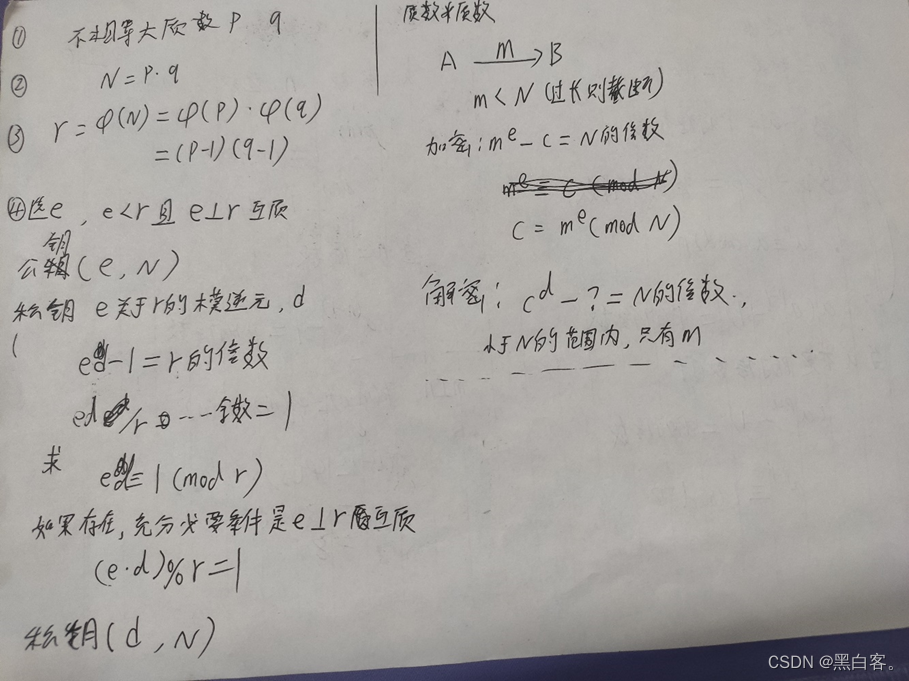 ① 不相等大质数 P q
② N = P·q
③ r = φ(N) = φ(P)·φ(q)
= (P-1)(q-1)
④选e, e<r且 e⊥r 互质
公钥(e, N)
私钥 e关于r的模逆元, d
(
ed-1 = r的倍数
ed /r ... 余数=1
求 ed = 1 (mod r)
如果存在, 充分必要条件是e⊥r 互质
(e·d)%r=1
私钥(d, N)
质数半质数
A m B
m < N (过长则截断)
加密: mᵉ - c = N的倍数
c = mᵉ(mod N)
解密: cᵈ - ? = N的倍数.,
小于N的范围内, 只有m
CSDN @黑白客。